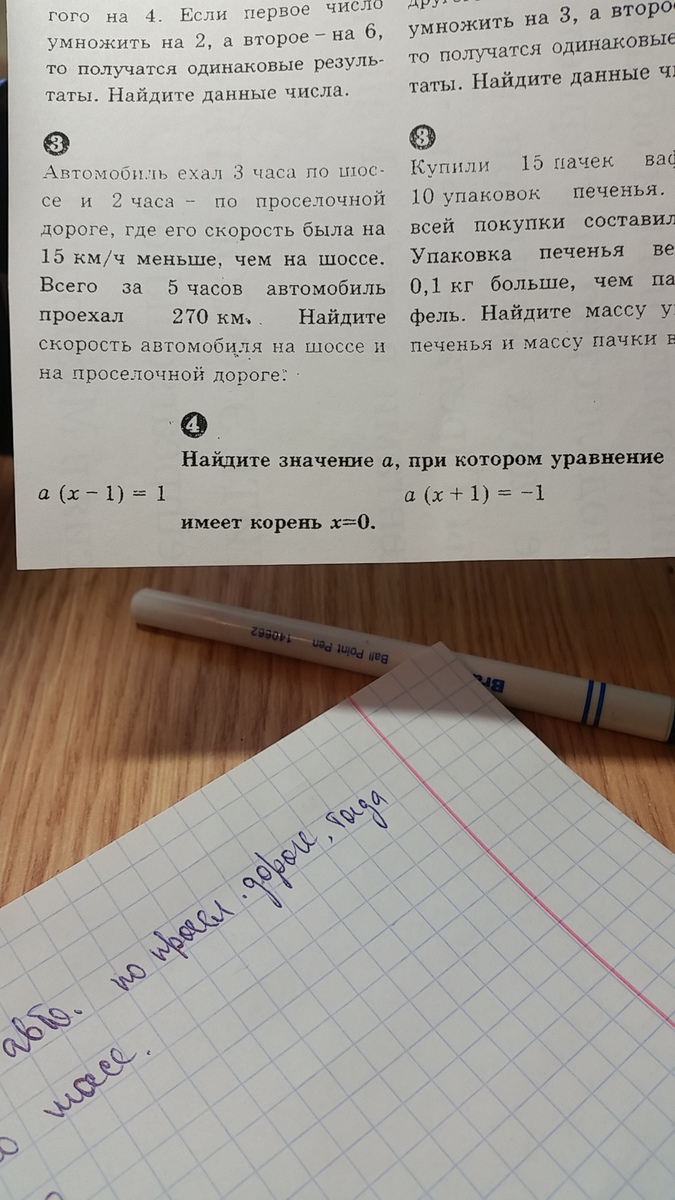 гого на 4. Если первое число
умножить на 2, а второе – на 6,
то получатся одинаковые резуль-
таты. Найдите данные числа.
3
Автомобиль ехал 3 часа по шос-
се и 2 часа – по проселочной
дороге, где его скорость была на
15 км/ч меньше, чем на шоссе.
Всего за 5 часов автомобиль
проехал 270 км. Найдите
скорость автомобиля на шоссе и
на проселочной дороге.
умножить на 3, а второ
то получатся одинаковые
таты. Найдите данные чи
3
Купили 15 пачек ваф
10 упаковок печенья.
всей покупки составил
Упаковка печенья ве
0,1 кг больше, чем па
фель. Найдите массу у
печенья и массу пачки в
4
Найдите значение a, при котором уравнение
a (x – 1) = 1 a (x + 1) = –1
имеет корень x=0.
Ball Point Pen 140662
авто. по просел. дороге, тогда
шоссе.